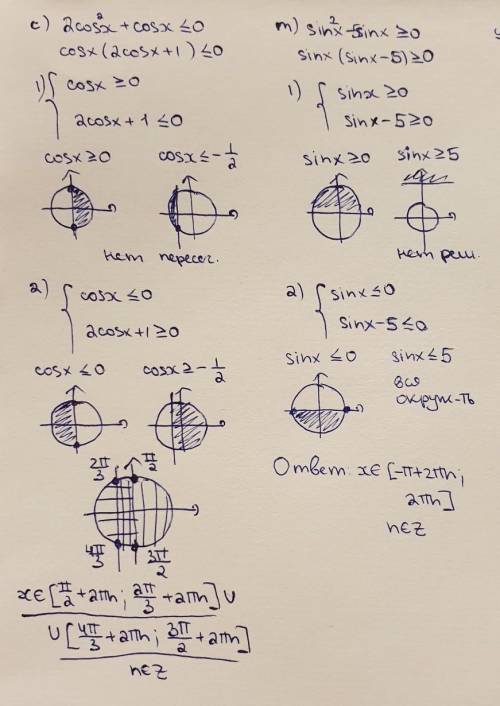 c) 2cos²x + cosx ≤ 0
cosx (2cosx+1) ≤ 0
1) { cosx ≥ 0
2cosx + 1 ≤ 0
cosx ≥ 0 cosx ≤ -1/2
нет пересеч.
2) { cosx ≤ 0
2cosx+1 ≥ 0
cosx ≤ 0 cosx ≥ -1/2
2π/3 π/2
4π/3 3π/2
x∈[π/2 + 2πn; 2π/3 + 2πn] ∪
∪ [4π/3 + 2πn; 3π/2 + 2πn]
n∈Z
m) sin²x - 5sinx ≥ 0
sinx (sinx - 5) ≥ 0
1) { sinx ≥ 0
sinx - 5 ≥ 0
sinx ≥ 0 sinx ≥ 5
нет реш.
2) { sinx ≤ 0
sinx - 5 ≤ 0
sinx ≤ 0 sinx ≤ 5
вся
окруж-ть
Ответ: x∈[-π+2πn;
2πn]
n∈Z